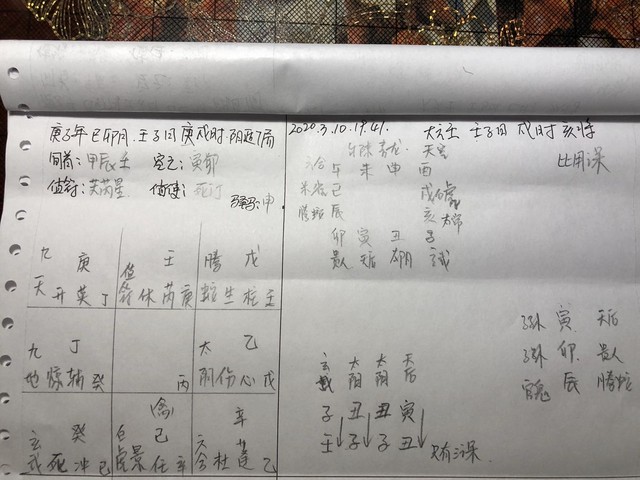 庚子年 己卯月 壬子日 庚戌时 阴遁7局
旬首：甲辰壬 空亡：寅卯
值符：芮星 值使：死门
马星：申
九 庚
天 开 英 丁
值 壬
符 休 芮 庚
腾 戊
蛇 生 柱 壬
九 丁
地 惊 辅 癸
丙
太 乙
阴 伤 心 戊
玄 癸
武 死 冲 己
禽
白 己
虎 景 任 辛
六 辛
合 杜 蓬 乙
2020.3.10.19.41.
大六壬 壬子日 戌时 亥将
勾陈 青龙 天空
六合 午 未 申 酉
朱雀 巳 戌 白虎
腾蛇 辰 亥 太常
卯 寅 丑 子
贵人 天后 太阴 玄武
比用课
子孙 寅 天后
子孙 卯 贵人
官鬼 辰 腾蛇
玄武 太阴 太阴 天后
子 丑 丑 寅
壬 子 子 丑
只有三课